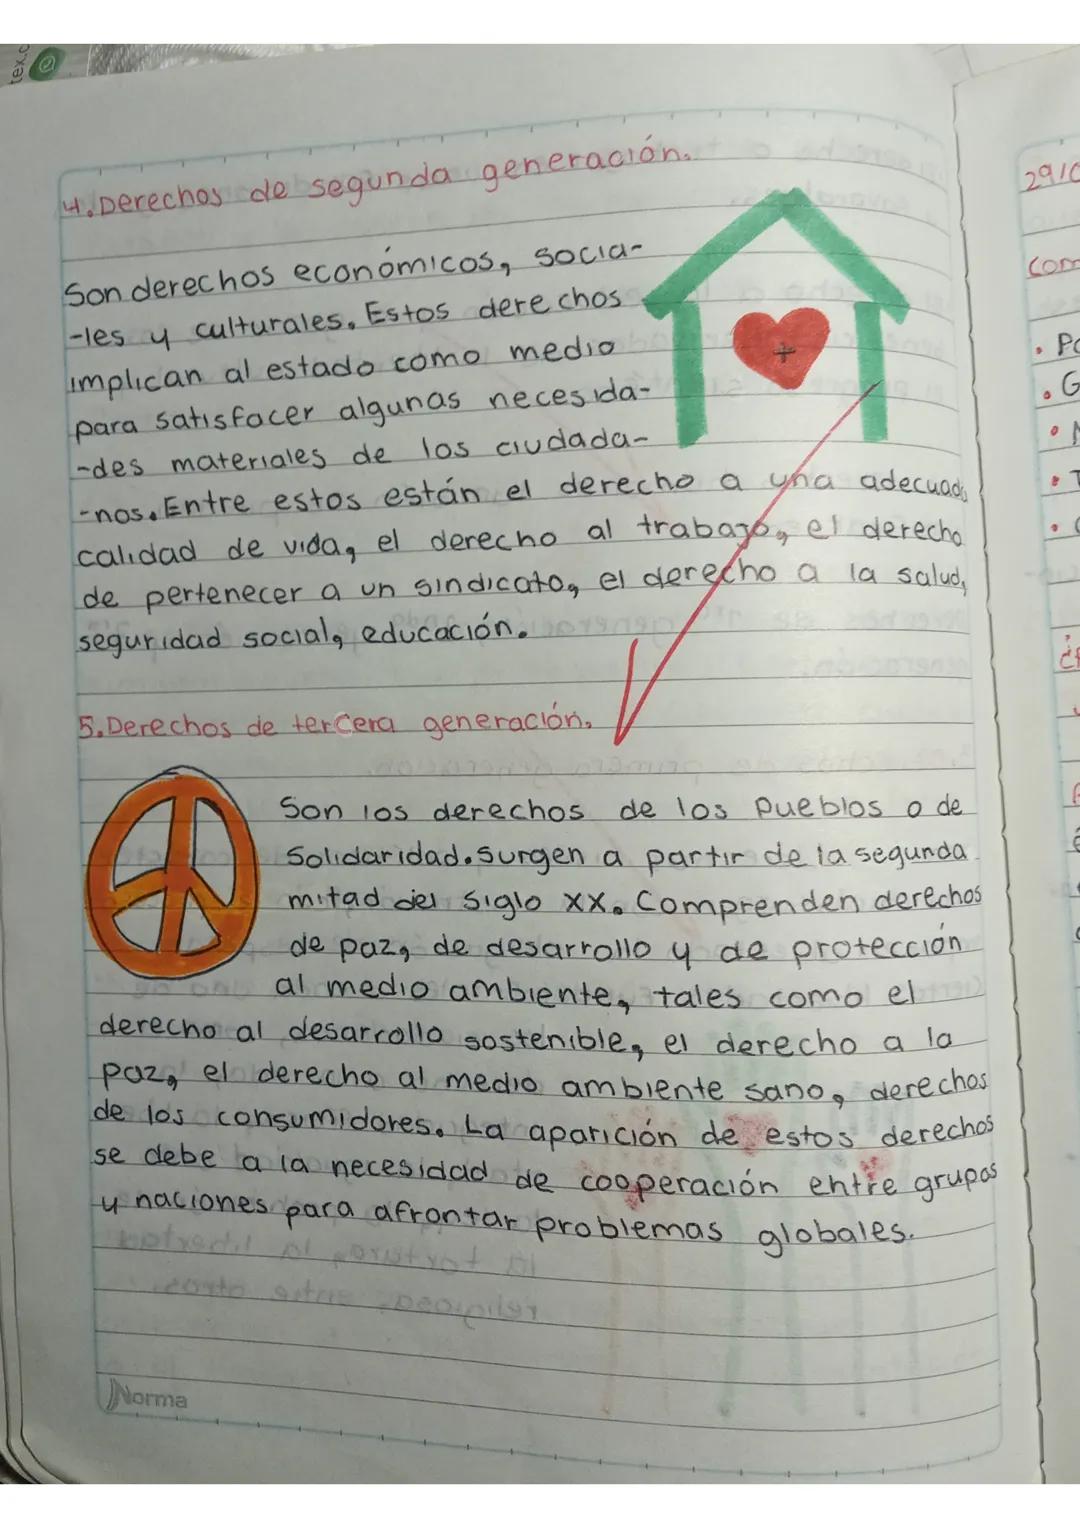 tex.c
4. Derechos de segunda generación.
Son derechos económicos, socia-
-les y culturales. Estos derechos
implican al estado como medio
para satisfacer algunas necesida-
-des materiales de los ciudada-
-nos. Entre estos están el derecho a una adecuada
calidad de vida, el derecho al trabajo, el derecho
de pertenecer a un sindicato, el derecho a la salud,
seguridad social, educación.
5. Derechos de tercera generación.
Son los derechos de los Pueblos o de
Solidaridad. Surgen a partir de la segunda
mitad del siglo XX. Comprenden derechos
de paz, de desarrollo y de protección
al medio ambiente, tales como el
derecho al desarrollo sostenible, el derecho a la
paz, el derecho al medio ambiente sano, derechos
de los consumidores. La aparición de estos derechos
se debe a la necesidad de cooperación entre grupos
y naciones para afrontar problemas globales.
Norma
2910
Com